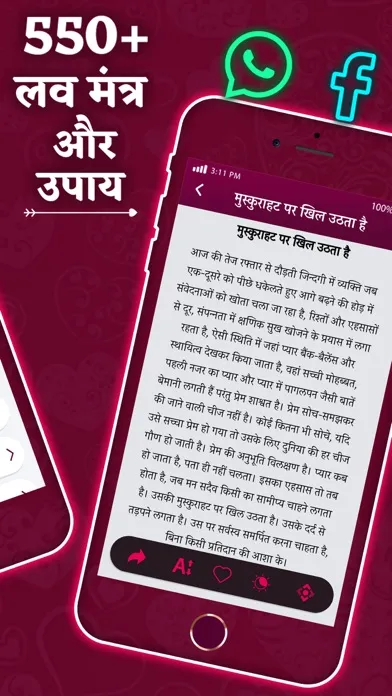 550+
लव मंत्र
और
उपाय
3:11 PM
100%
मुस्कुराहट पर खिल उठता है
मुस्कुराहट पर खिल उठता है
आज की तेज रफ्तार से दौड़ती जिन्दगी में व्यक्ति जब
एक-दूसरे को पीछे धकेलते हुए आगे बढ़ने की होड़ में
संवेदनाओं को खोता चला जा रहा है, रिस्तों और एहसासों
से दूर, संपनता में क्षणिक सुख खोजने के प्रयास में लगा
रहता है, ऐसी स्थिति में जहां प्यार बैंक-बैलेंस और
स्थायित्व देखकर किया जाता है, वहां सच्ची मोहब्बत,
पहली नजर का प्यार और प्यार में पागलपन जैसी बातें
बेमानी लगती हैं परंतु प्रेम शाश्वत है। प्रेम सोच-समझकर
की जाने वाली चीज नहीं है। कोई कितना भी सोचे, यदि
उसे सच्चा प्रेम हो गया तो उसके लिए दुनिया की हर चीज
गौण हो जाती है। प्रेम की अनुभूति विलक्षण है। प्यार कब
हो जाता है, पता ही नहीं चलता। इसका एहसास तो तब
होता है, जब मन सदैव किसी का सामीप्य चाहने लगता
है। उसकी मुस्कुराहट पर खिल उठता है। उसके दर्द से
तड़पने लगता है। उस पर सर्वस्व समर्पित करना चाहता है,
बिना किसी प्रतिदान की आशा के।
A